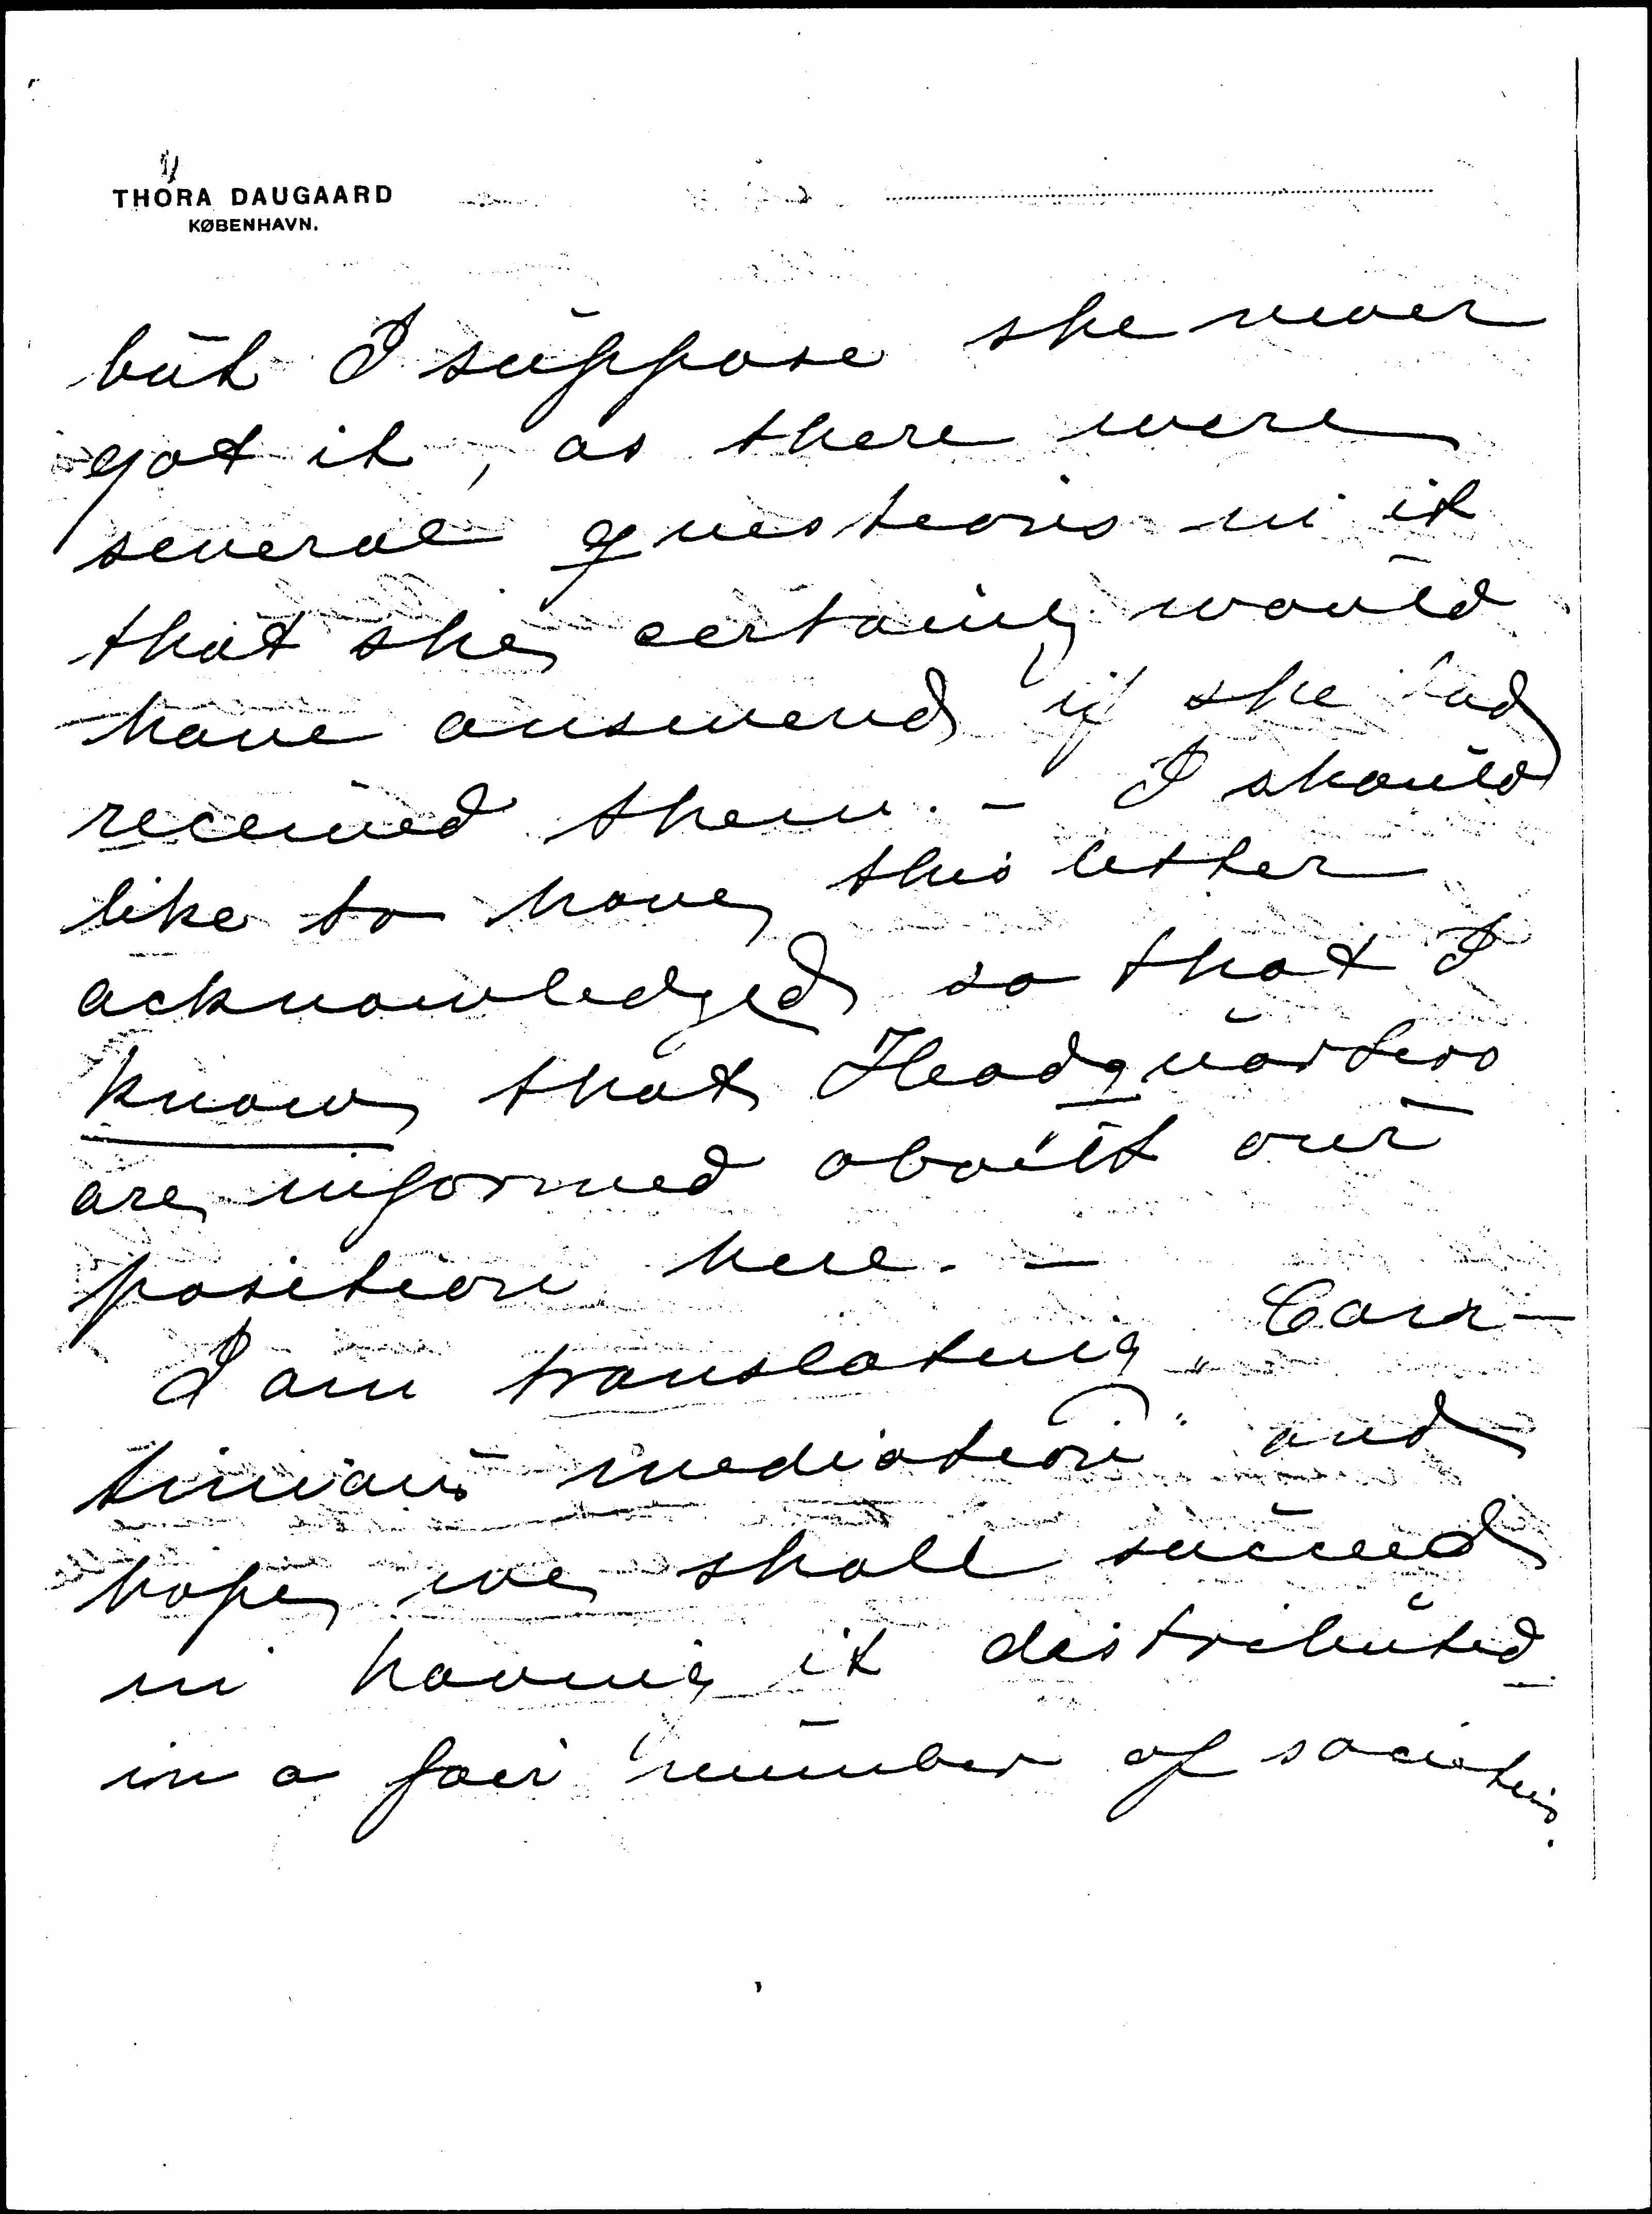 THORA DAUGAARD
KØBENHAVN.
but I suppose she never
got it, as there were
several questions in it
that she certainly would
have answered if she had
received them. - I should
like to have this letter
acknowledged so that I
know that Headquarters
are informed about our
position here. -
I am translating „Con-
tinuous mediation" and
hope we shall succeed
in having it distributed
in a fair number of societies.